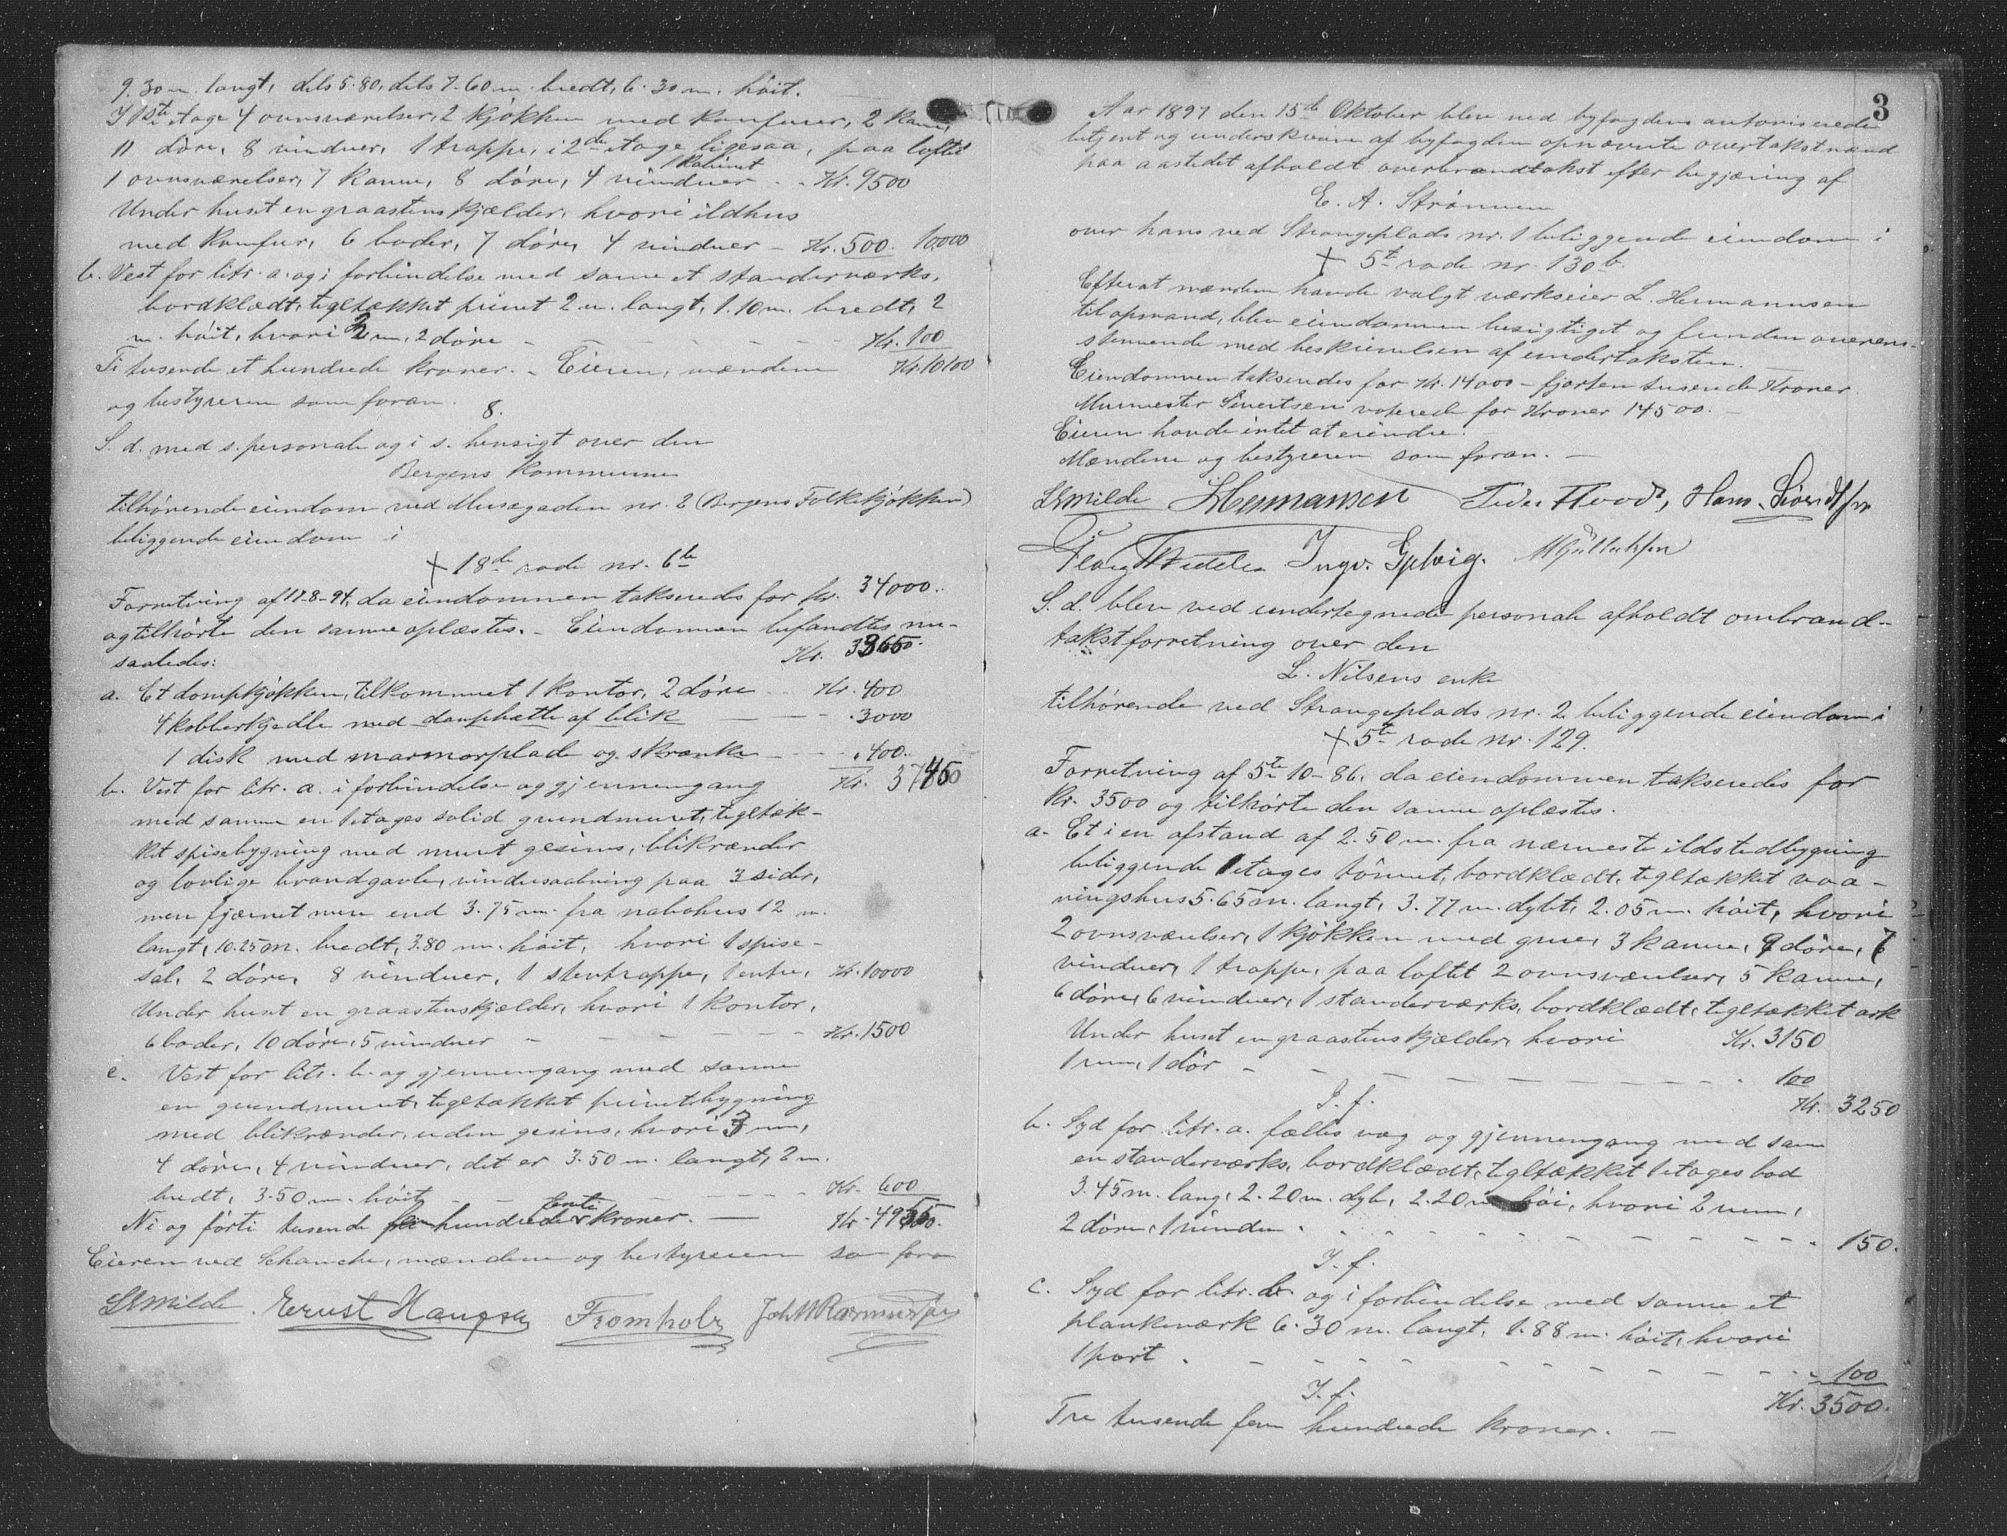 9.30 m. langt, dels 5.80, dels 7.60 m. bredt, 6.30 m. høit.
I 1ste etage 4 ovnsværelser, 2 kjøkken med komfurer, 2 kamre,
11 døre, 8 vinduer, 1 trappe, i 2de etage ligesaa, paa loftet
1 ovnsværelser, 7 kamre, 8 døre, 4 vinduer - - Kr. 9500
Under huset en graastenskjælder, hvori ildhus
med komfur, 6 boder, 7 døre, 4 vinduer - Kr. 500. 10,000
b. Vest for litr. a. og i forbindelse med samme et standerværks,
bordklædt, tegltækket privet 2 m. langt, 1.10 m. bredt, 2
m. høit, hvori 2 rum, 2 døre - - - - - Kr. 100
Ti tusende et hundrede kroner. - Eieren, mændene Kr. 10100
og bestyreren som foran.
8.
S. d. med s. personale og i s. hensigt over den
Bergens Kommune
tilhørende eiendom ved Musægaden nr. 2 (Bergens Folkekjøkken)
beliggende eiendom i
+ 18de rode nr. 6b
Forretning af 17-8-94, da eiendommen taksereds for kr. 34000.
og tilhørte den samme oplæstes. - Eiendommen befandtes nu-
saaledes: Kr. 33650.
a. Et dampkjøkken, tilkommet 1 kontor, 2 døre - Kr. 400
4 kobberkjedle med damphætte af blik - - - . 3000
1 disk med marmorplade og skranke - - - . 400.
b. Vest for litr. a. i forbindelse og gjennemgang Kr. 37450
med samme en 1 etages solid grundmuret, tegltæk-
ket spisebygning med muret gesims, blikrænder
og lovlige brandgavle, vinduesaabning paa 3 sider,
men fjærnet mere end 3.75 m. fra nabohus 12 m.
langt, 10.25 m. bredt, 3.80 m. høit, hvori 1 spise-
sal, 2 døre, 8 vinduer, 1 stentrappe, 1 entre, Kr. 10000
Under huset en graastenskjælder, hvori 1 kontor,
6 boder, 10 døre, 5 vinduer - - - - - Kr. 1500
c. Vest for litr. b. og gjennemgang med samme
en grundmuret, tegltækket privetbygning
med blikrænder, uden gesims, hvori 3 rum,
4 døre, 4 vinduer, det er 3.50 m. langt, 2 m.
bredt, 3.50 m. høit - - - - - Kr. 600
Ni og førti tusende hundrede kroner. - Kr. 49550.
Eieren ved Schancke, mændene og bestyreren som foran
Milde. Ernst Fromholz Joh. M Rasmussen
3
Aar 1897 den 15de Oktober blev ved byfogdens autoriserede
betjent og underskrevne af byfogden opnævnte overtakstmænd
paa aastedet afholdt overbrandtakst efter begjæring af
E. A. Strømmen
over hans ved Strangeplads nr. 1 beliggende eiendom i
+ 5te rode nr. 130b.
Efterat mændene havde valgt værkseier L. Hermannsen
til opmand, blev eiendommen besigtiget og funden overens-
stemmende med beskrivelsen af undertaksten. -
Eiendommen takseredes for Kr. 14000 - fjorten tusende Kroner.
Murmester Sivertsen voterede for Kroner 14500. -
Eieren havde intet at erindre.
Mændene og bestyreren som foran. -
Milde L Hermansen Peder Hans
Georg Ingv. M
S. d. blev ved undertegnede personale afholdt ombrand-
takstforretning over den
L. Nilsens enke
tilhørende ved Strangeplads nr. 2 beliggende eiendom i
+ 5te rode nr. 129.
Forretning af 5te 10-86, da eiendommen taksereds for
Kr. 3500 og tilhørte den samme oplæstes.
a. Et i en afstand af 2.50 m. fra nærmeste ildstedbygning
beliggende 1 etages tømret, bordklædt, tegltækket vaa-
ningshus 5.65 m. langt, 3.77 m. dybt, 2.05 m. høit, hvori
2 ovnsværelser, 1 kjøkken med grue, 3 kamre, 9 døre, 6
vinduer, 1 trappe, paa loftet 2 ovnsværelser, 5 kamre,
6 døre, 6 vinduer, 1 standerværks, bordklædt, tegltækket ark
Under huset en graastenskjælder, hvori Kr. 3150
1 rum, 1 dør - - - - - - - 100
I. f. Kr. 3250
b. Syd for litr. a. fælles væg og gjennemgang med sam
en standerværks, bordklædt, tegltækket 1 etages bod
3.45 m. lang, 2.20 m. dyb, 2.20 m høi, hvori 2 rum,
2 døre, 1 vindu - - - - - - - 150.
I. f.
c. Syd for litr. b. og i forbindelse med samme et
plankeværk 6.30 m. langt, 1.88 m. høit, hvori
1 port. - - - - - - - 100
I. f. Kr. 3500.
Tre tusende fem hundrede kroner. -